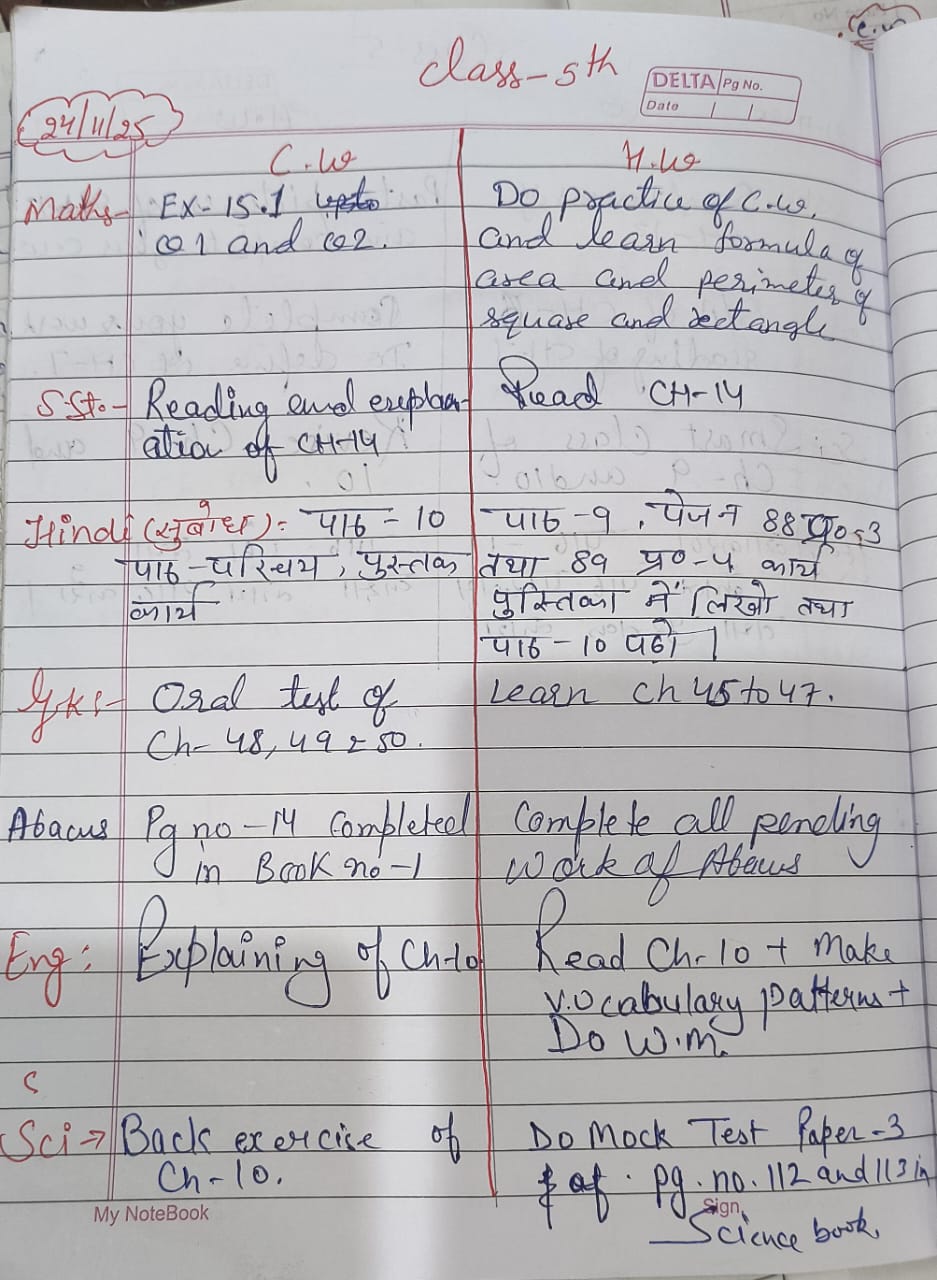 C.W
Class-5th
DELTA Pg No.
Date / /
24/11/25
C.W H.W
Maths- EX-15.1 upto Do practice of C.W.
Q1 and Q2. and learn formula of
area and perimeter of
square and rectangle
S.St.- Reading and explan- Read CH-14
ation of CH-14
Hindi (सुबोध):- पाठ-10 पाठ-9, पेज न 88 प्र०-3
पाठ-परिचय, पुस्तक तथा 89 प्र०-५ कार्य
कार्य पुस्तिका में लिखो तथा
पाठ-10 पढो।
G.K:- Oral test of Learn ch 45 to 47.
Ch- 48, 49 & 50.
Abacus Pg no-14 Completed Complete all pending
in Book no-1 work of Abacus
Eng: Explaining of Ch-10 Read Ch-10 + Make
vocabulary patterns +
Do W.M.
S
Sci→ Back exercise of Do Mock Test Paper-3
Ch-10. of pg.no.112 and 113 in
My NoteBook Sign.
Science book.